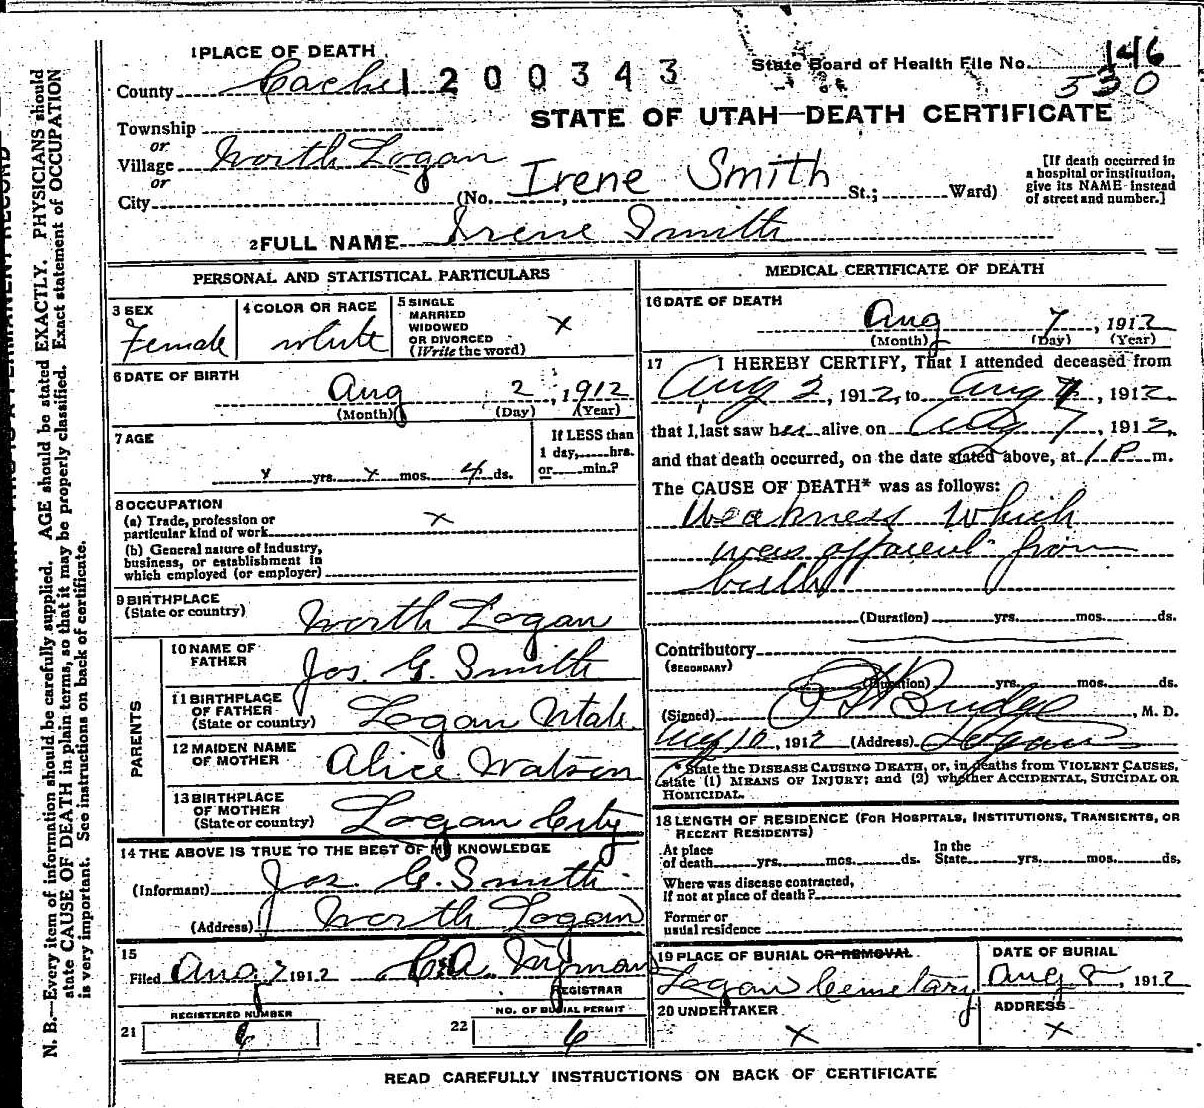 1 PLACE OF DEATH
County Cache 1200343
State Board of Health File No. 146
530
STATE OF UTAH—DEATH CERTIFICATE
Township
or
Village North Logan
or
City (No. Irene Smith St.; Ward)
[If death occurred in
a hospital or institution,
give its NAME instead
of street and number.]
2 FULL NAME Irene Smith
PERSONAL AND STATISTICAL PARTICULARS
3 SEX
Female
4 COLOR OR RACE
white
5 SINGLE
MARRIED
WIDOWED
OR DIVORCED
(Write the word)
x
6 DATE OF BIRTH
Aug 2, 1912
(Month) (Day) (Year)
7 AGE
x yrs. x mos. 4 ds.
If LESS than
1 day, hrs.
or min.?
8 OCCUPATION
(a) Trade, profession or
particular kind of work
x
(b) General nature of Industry,
business, or establishment in
which employed (or employer)
9 BIRTHPLACE
(State or country) North Logan
PARENTS
10 NAME OF
FATHER Jos. G. Smith
11 BIRTHPLACE
OF FATHER
(State or country) Logan Utah
12 MAIDEN NAME
OF MOTHER Alice Watson
13 BIRTHPLACE
OF MOTHER
(State or country) Logan City
14 THE ABOVE IS TRUE TO THE BEST OF MY KNOWLEDGE
(Informant) Jos. G. Smith
(Address) North Logan
15
Filed Aug. 7 1912
REGISTRAR
REGISTERED NUMBER
21 6
NO. OF BURIAL PERMIT
22 6
MEDICAL CERTIFICATE OF DEATH
16 DATE OF DEATH
Aug 7, 1912
(Month) (Day) (Year)
17 I HEREBY CERTIFY, That I attended deceased from
Aug 2, 1912, to Aug 7, 1912,
that I last saw her alive on Aug 7, 1912,
and that death occurred, on the date stated above, at 1 P m.
The CAUSE OF DEATH* was as follows:
Weakness which
was apparent from
birth
(Duration) yrs. mos. ds.
Contributory
(SECONDARY)
(Duration) yrs. mos. ds.
(Signed) Budge, M. D.
Aug 10, 1912 (Address) Logan
* State the DISEASE CAUSING DEATH, or, in deaths from VIOLENT CAUSES,
state (1) MEANS OF INJURY; and (2) whether ACCIDENTAL, SUICIDAL OR
HOMICIDAL.
18 LENGTH OF RESIDENCE (FOR HOSPITALS, INSTITUTIONS, TRANSIENTS, OR
RECENT RESIDENTS)
At place
of death yrs. mos. ds.
In the
State yrs. mos. ds.
Where was disease contracted,
If not at place of death?
Former or
usual residence
19 PLACE OF BURIAL OR REMOVAL
Logan Cemetary
DATE OF BURIAL
Aug 8, 1912
20 UNDERTAKER
x
ADDRESS
x
READ CAREFULLY INSTRUCTIONS ON BACK OF CERTIFICATE
N. B.—Every item of information should be carefully supplied. AGE should be stated EXACTLY. PHYSICIANS should
state CAUSE OF DEATH in plain terms, so that it may be properly classified. Exact statement of OCCUPATION
is very important. See instructions on back of certificate.